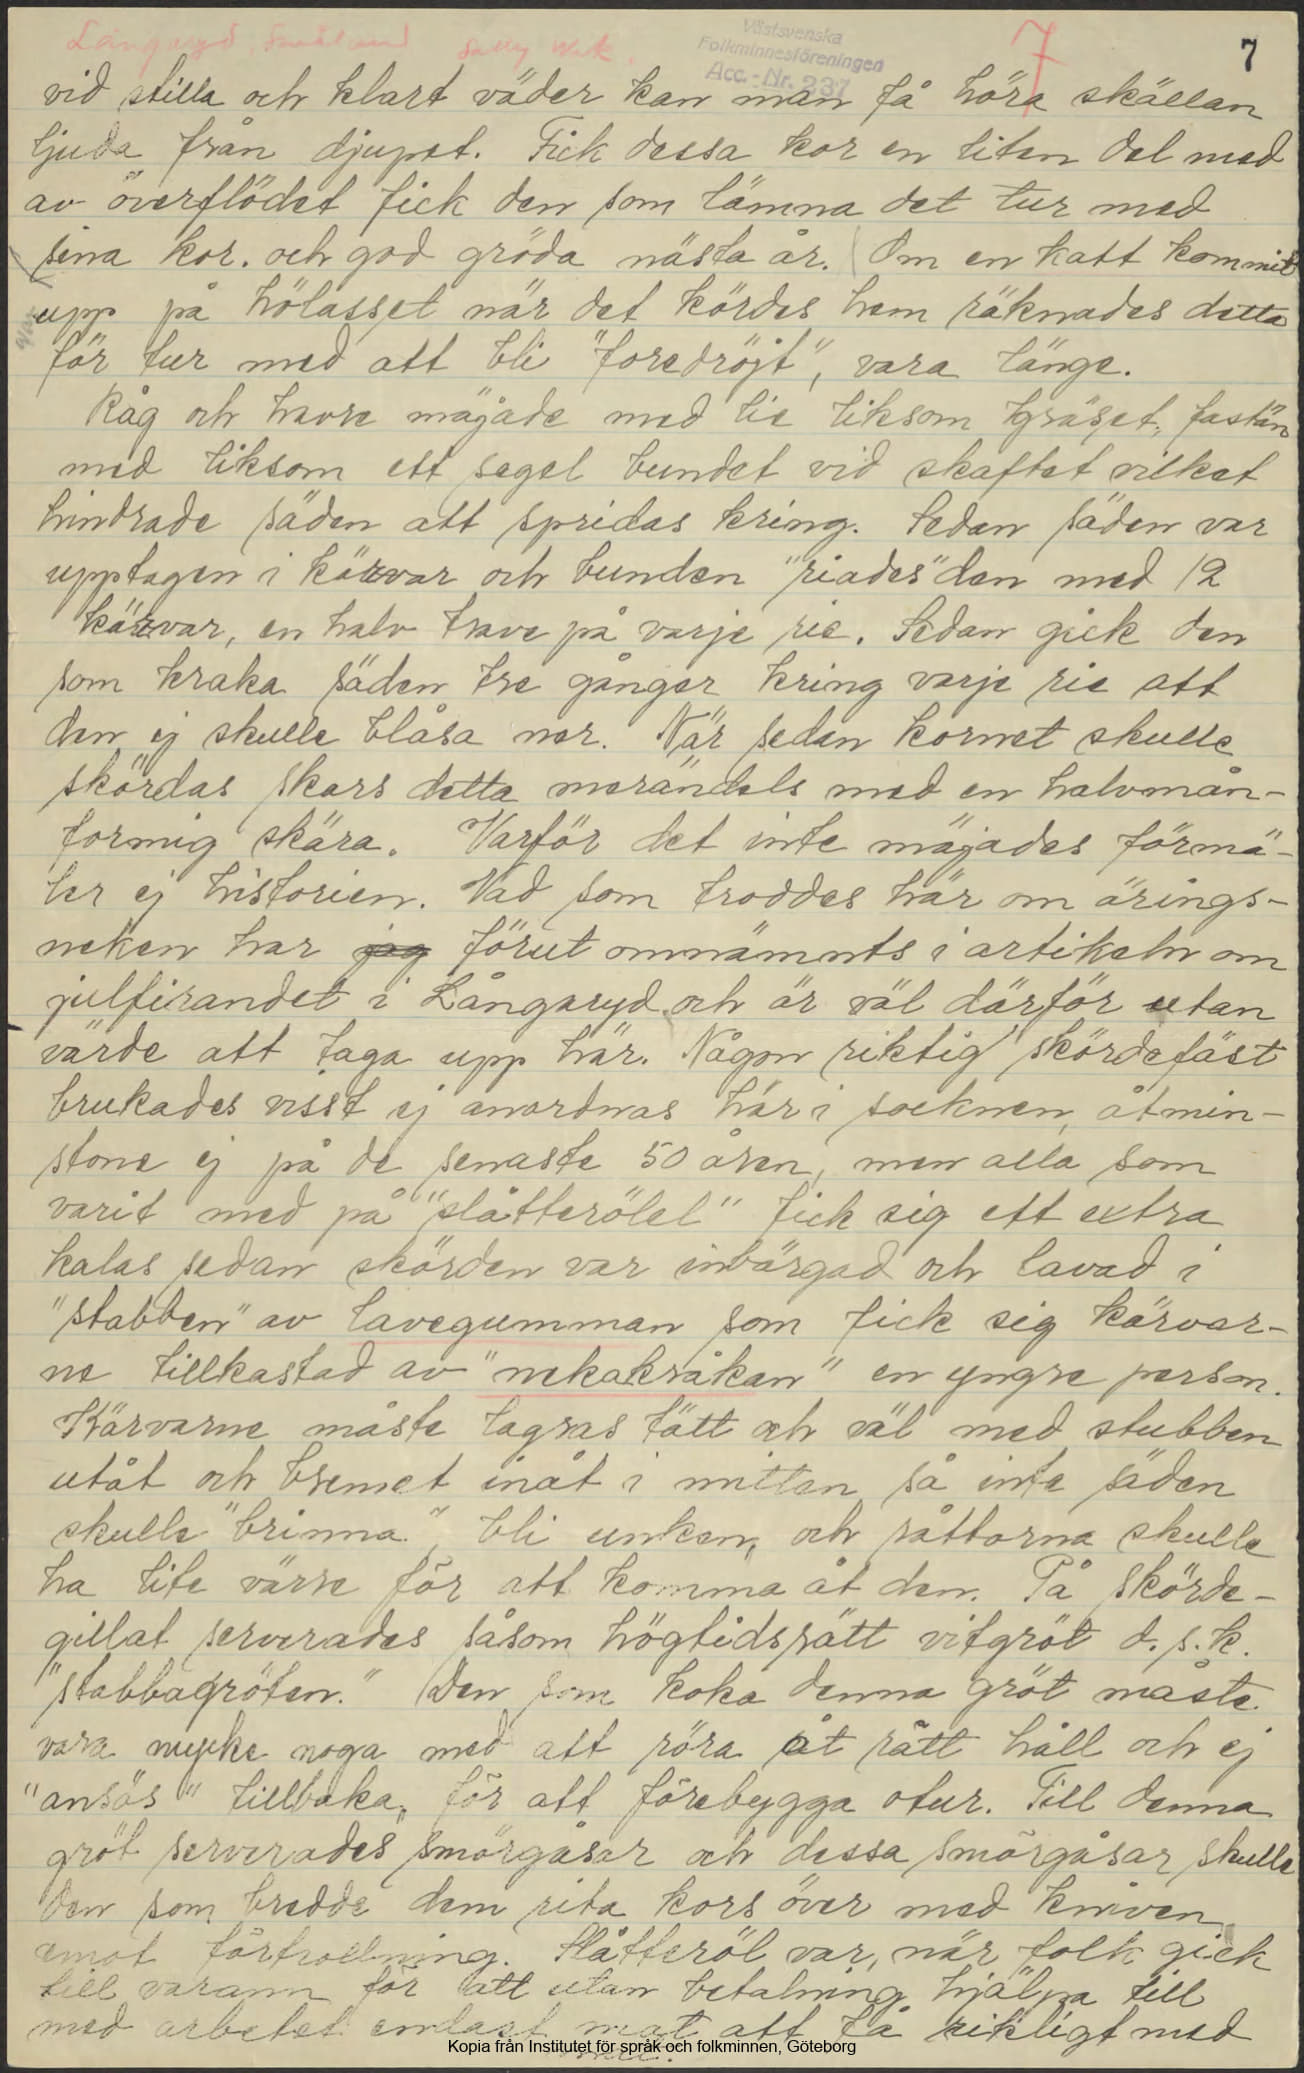 Långaryd, Småland Sally Wik.
Västsvenska
Folkminnesföreningen
Acc.-Nr. 237
7
7
vid stilla och klart väder kan man få höra skällan
ljuda från djupet. Fick dessa kor en liten del med
av överflödet fick den som lämna det tur med
sina kor. och god gröda nästa år. Om en katt kommit
upp på hölasset när det kördes hem räknades detta
för tur med att bli "foredröjt", vara länge.
Råg och havre mäjade med lie liksom gräset, fastän
med liksom ett segel bundet vid skaftet vilket
hindrade säden att spridas kring. Sedan säden var
upptagen i kärvar och bunden "riades" den med 12
kärvar, en halv trave på varje rie. Sedan gick den
som kraka säden tre gånger kring varje rie att
den ej skulle blåsa ner. När sedan kornet skulle
skördas skars detta merändels med en halvmån-
formig skära. Varför det inte mäjades förmä-
ler ej historien. Vad som troddes här om ärings-
neken har jag förut omnämnts i artikeln om
julfirandet i Långaryd och är väl därför utan
värde att taga upp här. Någon riktig skördefäst
brukades visst ej anordnas här i socknen, åtmin-
stone ej på de senaste 50 åren, men alla som
varit med på "slåtterölel" fick sig ett extra
kalas sedan skörden var inbärgad och lavad i
"stabben" av lavegumman som fick sig kärvar-
ne tillkastad av "nekakråkan" en yngre person.
Kärvarne måste lagras tätt och väl med stubben
utåt och bremet inåt i mitten så inte säden
skulle "brinna", bli unken, och råttorna skulle
ha lite värre för att komma åt den. På skörde-
gillat serverades såsom högtidsrätt vitgröt d.s.k.
"stabbagröten." Den som koka denna gröt måste
vara mycke noga med att röra åt rätt håll och ej
"ansös" tillbaka, för att förebygga otur. Till denna
gröt serverades smörgåsar och dessa smörgåsar skulle
den som bredde dem rita kors över med kniven
emot förtrollning. Slåtteröl var, när folk gick
till varann för att utan betalning hjälpa till
med arbetet endast mat att få rikligt med
Kopia från Institutet för språk och folkminnen, Göteborg